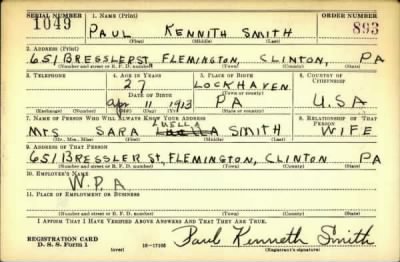 SERIAL NUMBER 1. NAME (Print) ORDER NUMBER
1049 PAUL KENNITH SMITH 893
(First) (Middle) (Last)
2. ADDRESS (Print)
651 BRESSLER ST, FLEMINGTON, CLINTON, PA
(Number and street or R. F. D. number) (Town) (County) (State)
3. TELEPHONE 4. AGE IN YEARS 5. PLACE OF BIRTH 6. COUNTRY OF CITIZENSHIP
27 LOCKHAVEN
DATE OF BIRTH (Town or county)
Apr 11 1913 PA U.S.A
(Exchange) (Number) (Mo.) (Day) (Yr.) (State or country)
7. NAME OF PERSON WHO WILL ALWAYS KNOW YOUR ADDRESS 8. RELATIONSHIP OF THAT PERSON
LUELLA
Mrs SARA SMITH WIFE
(Mr., Mrs., Miss) (First) (Middle) (Last)
9. ADDRESS OF THAT PERSON
651 BRESSLER St, FLEMINGTON, CLINTON PA
(Number and street or R. F. D. number) (Town) (County) (State)
10. EMPLOYER'S NAME
W.P.A
11. PLACE OF EMPLOYMENT OR BUSINESS
(Number and street or R. F. D. number) (Town) (County) (State)
I AFFIRM THAT I HAVE VERIFIED ABOVE ANSWERS AND THAT THEY ARE TRUE.
REGISTRATION CARD
D. S. S. Form 1 (over) 16-17105 Paul Kenneth Smith
(Registrant's signature)